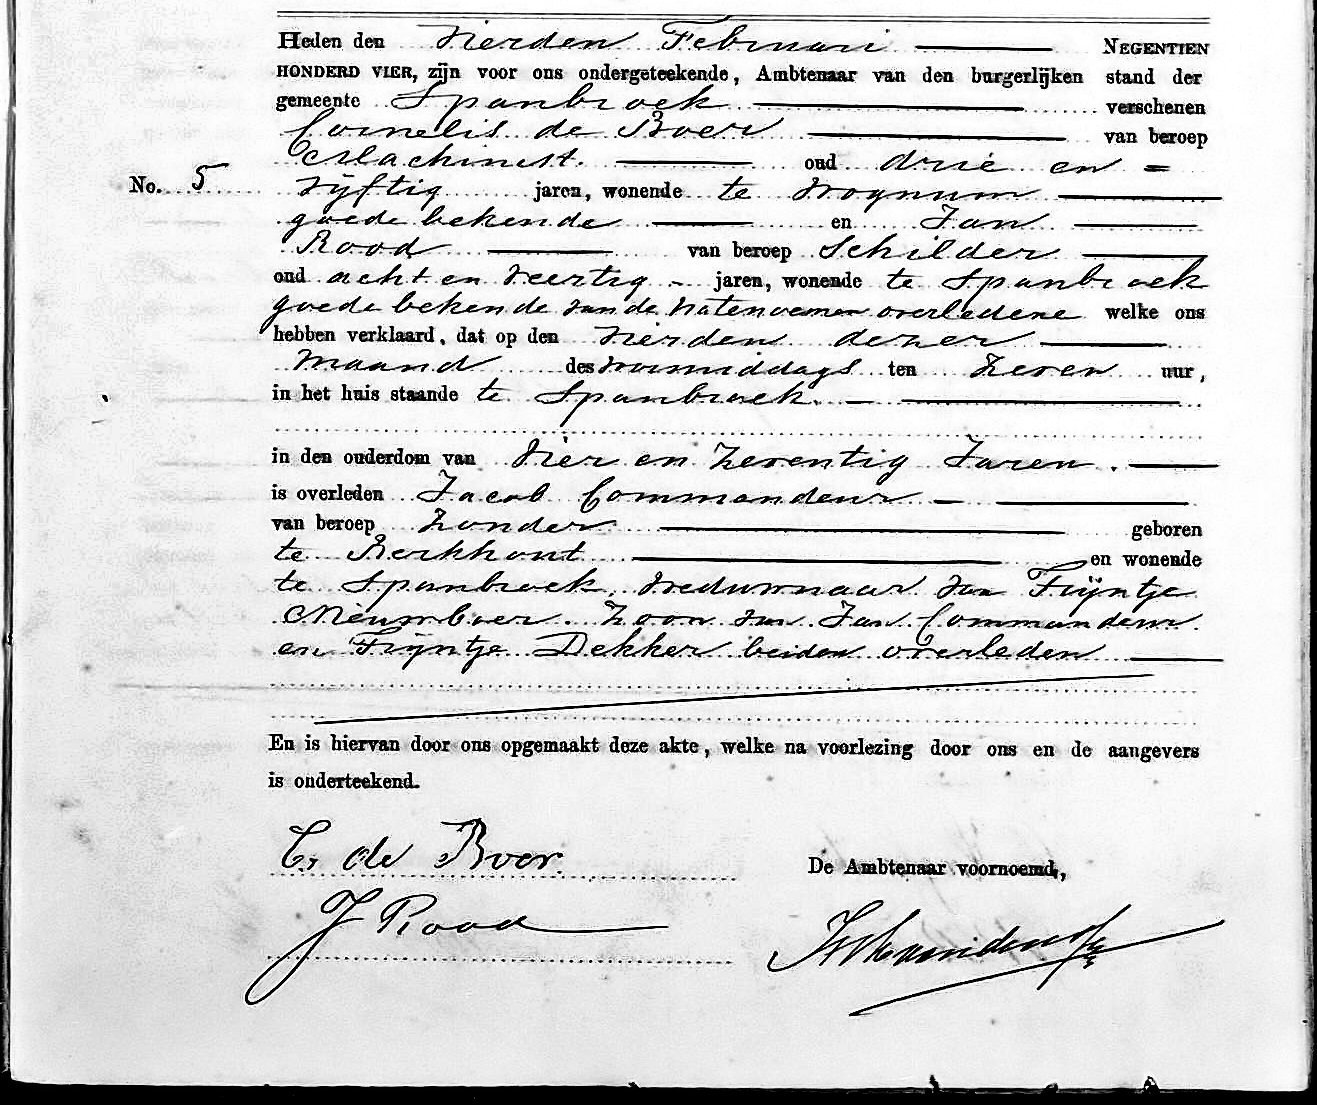 Heden den vierden Februari NEGENTIEN
HONDERD VIER, zijn voor ons ondergeteekende, Ambtenaar van den burgerlijken stand der
gemeente Spanbroek verschenen
Cornelis de Boer van beroep
Machinist. oud drie en =
No. 5 vijftig jaren, wonende te Wognum
goede bekende en Jan
Rood van beroep Schilder
oud acht en veertig - jaren, wonende te Spanbroek
goede bekende van de natenoemen overledene welke ons
hebben verklaard, dat op den vierden dezer
maand des voormiddags ten zeven uur,
in het huis staande te Spanbroek. -
in den ouderdom van vier en zeventig Jaren.
is overleden Jacob Commandeur -
van beroep zonder geboren
te Berkhout en wonende
te Spanbroek, weduwnaar van Trijntje
Nieuwboer. zoon van Jan Commandeur
en Trijntje Dekker beiden overleden
En is hiervan door ons opgemaakt deze akte, welke na voorlezing door ons en de aangevers
is onderteekend.
C. de Boer.
De Ambtenaar voornoemd,
J Rood